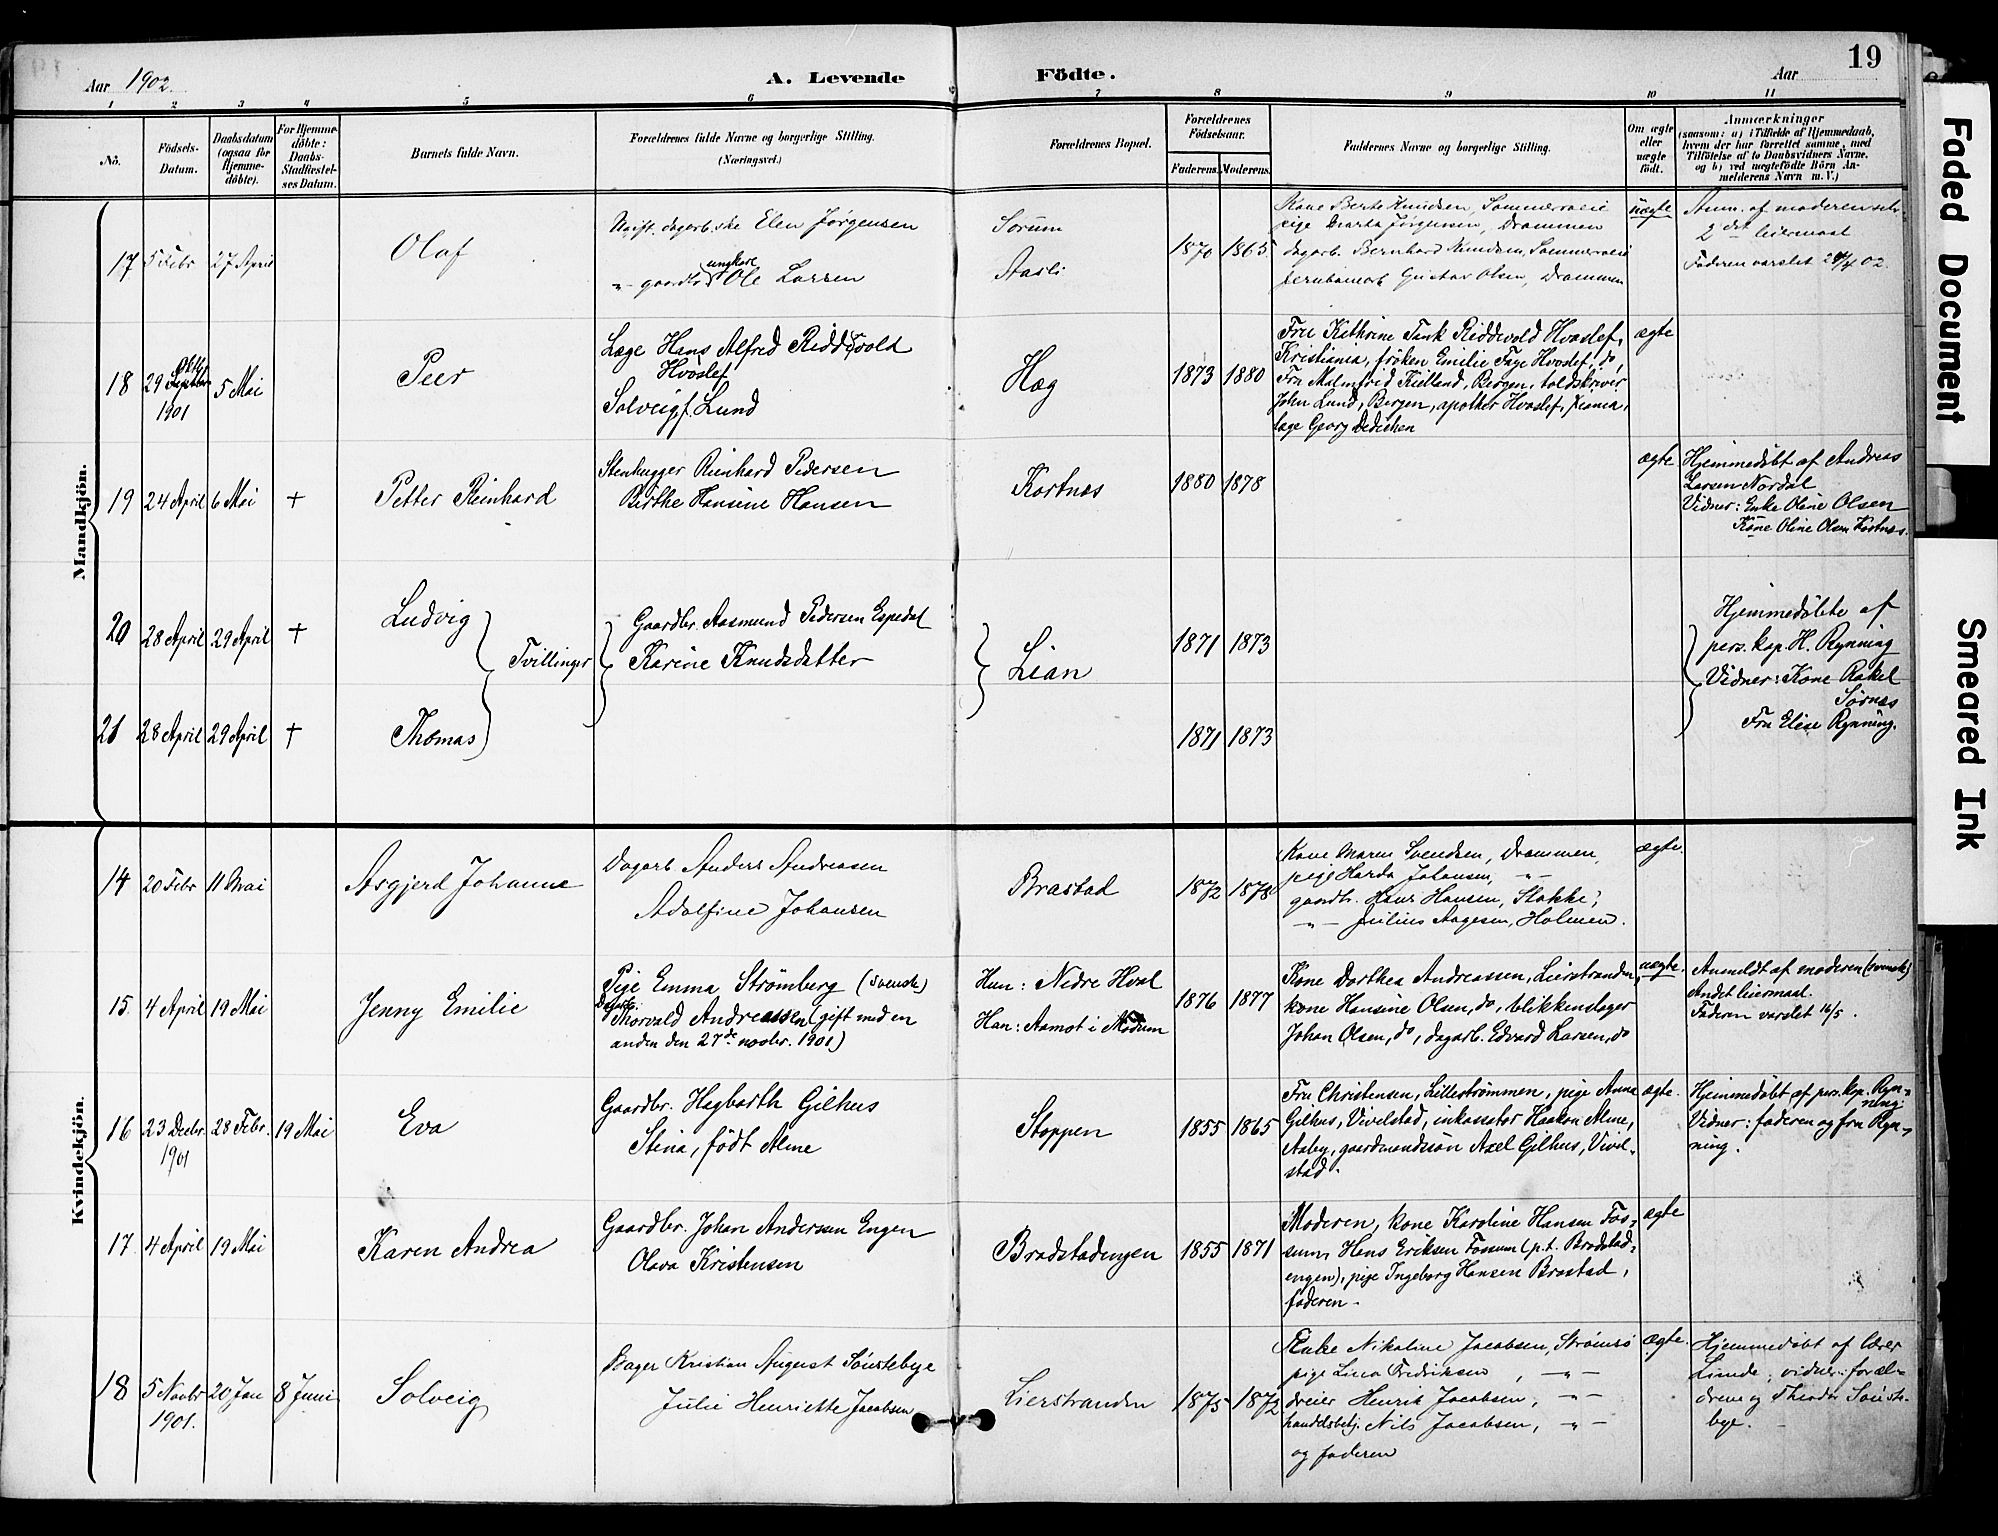 19
Aar 1902.
A. Levende
Födte.
Aar
1 2 3 4 5 6 7 8 9 10 11
No.
Födsels-Datum.
Daabsdatum (ogsaa for Hjemme-döbte).
For Hjemme-döbte: Daabs-Stadfæstel-ses Datum.
Barnets fulde Navn.
Forældrenes fulde Navne og borgerlige Stilling. (Næringsvei.)
Forældrenes Bopæl.
Forældrenes Födselsaar.
Faderens. Moderens.
Faddernes Navne og borgerlige Stilling.
Om ægte eller uægte födt.
Anmærkninger
(saasom: a) i Tilfælde af Hjemmedaab, hvem der har forrettet samme, med Tilföielse af to Daabsvidners Navne, og b) ved uægtefödte Börn An-melderens Navn m. V.)
Mandkjön.
17 5 Febr 27 April
Olaf
Ugift dagarb.ske Elen Jørgensen
ungkarl
Ole Larsen
Sørum
Aasli
1870 1865
Kone Berte Knudsen, Sommerveie
pige Marta Jørgensen, Drammen
dagarb. Bernhard Knudsen, Sommerveie
jernbanearb Gustav Olsen, Drammen
uægte
Anm. af moderen selv
2det leiermaal
Faderen varslet 29/4 02.
18 29 Septbr 1901 5 Mai
Oktbr
Peer
Læge Hans Alfred Riddervold
Hvoslef
Solveig f. Lund
Hæg
1873 1880
Fru Kathrine Tank Riddervold Hvoslef,
Kristiania, frøken Emilie Faye Hvoslef, do,
Fru Malmfrid Kielland, Bergen, toldskriver
John Lund, Bergen, apotheker Hvoslef, Xiania,
læge Georg Dedichen
ægte
19 24 April 6 Mai +
Petter Reinhard
Stenhugger Reinhard Pedersen
Birthe Hansine Hansen
Kortnæs
1880 1878
ægte
Hjemmedöbt af Andreas
Larsen Nordal
Vidner: Enke Oline Olsen
Kone Oline Olsen Kortnæs.
20 28 April 29 April +
Ludvig
Tvillinger
Gaardbr. Aasmund Pedersen Espedal
Karine Knudsdatter
Lian
1871 1873
Hjemmedöbte af
pers. kap. H. Rynning
Vidner: Kone Rakel
Sörnæs
Fru Elise Rynning.
21 28 April 29 April +
Thomas
1871 1873
Kvindekjön.
14 20 Febr 11 Mai
Asgjerd Johanne
Dagarb Anders Andreasen
Adolfine Johansen
Brastad
1872 1878
Kone Maren Svendsen, Drammen,
pige Harda Johansen, -"-
gaardbr. Hans Hansen, Stokke;
-"- Julius Aagesen, Holmen.
ægte.
15. 4 April 19 Mai
Jenny Emilie
Pige Emma Strömberg (svensk)
Dagarb.
Thorvald Andreassen (gift med en
anden den 27de novbr. 1901)
Hun: Nedre Hval
Han: Aamot i Modum
1876 1877
Kone Dorthea Andreassen, Lierstranden,
kone Hansine Olsen, do, blikkenslager
Johan Olsen, do, dagarb. Edvard Larsen, do
uægte.
Anmeldt af moderen (svensk)
Andet leiermaal.
Faderen varslet 16/5.
16 23 Decbr. 1901 28 Febr. 19 Mai
Eva
Gaardbr. Hagbarth Gilhus
Stina, födt Alme
Stoppen
1855 1865
Fru Christensen, Lilleströmmen, pige Anna
Gilhus, Vivelstad, inkassator Haakon Alme,
Asby, gaardmandssön Axel Gilhus, Vivel-
stad.
ægte.
Hjemmedöbt af pers. kap. Ryn-
ning
Vidner: faderen og fru Ryn-
ning.
17. 4 April 19 Mai
Karen Andrea
Gaardbr. Johan Anderssen Engen
Olava Kristensen
Bradstadengen
1855 1871
Moderen, kone Karoline Hansen Fos-
sum, Hans Eriksen Fossum (p.t. Bradstad-
engen), pige Ingeborg Hansen Brastad,
faderen.
ægte
18 5 Novbr 1901. 20 Jan 8 Juni
Solveig
Bager Kristian August Sönstebye
Julie Henriette Jacobsen
Lierstranden
1875 1872
Enke Nikoline Jacobsen, Strømsö
pige Lina Fredriksen, -"-
dreier Henrik Jacobsen, -"-
handelsbetj. Nils Jacobsen, -"-
og faderen
ægte.
Hjemmedöbt af lærer
Linde; vidner: foræl-
drene og Theodor Sönste-
bye.
Faded Document
Smeared Ink